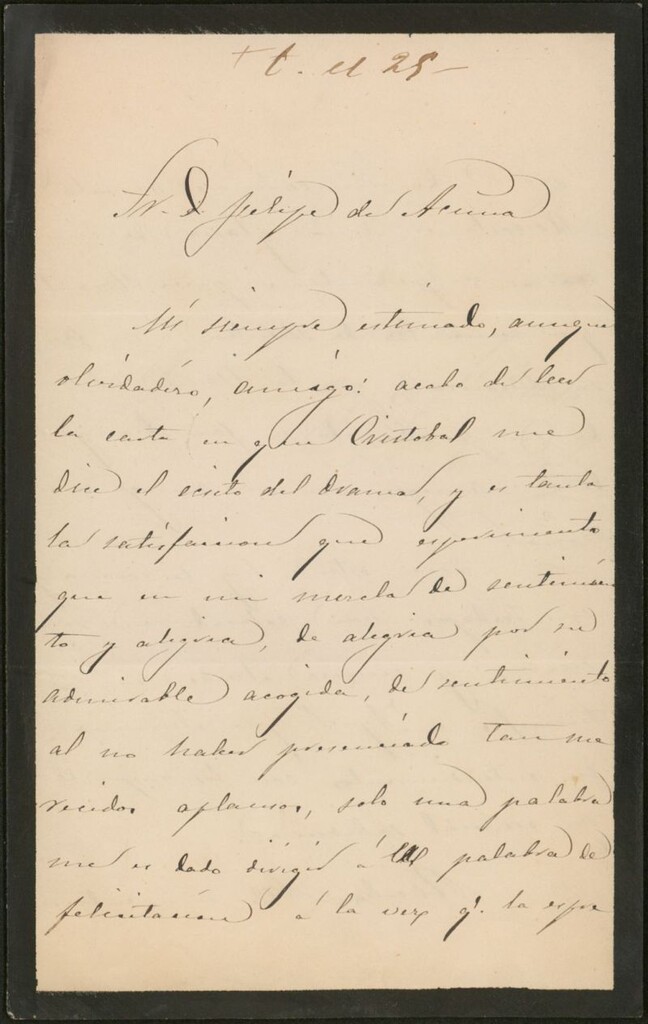 + C. el 25-
Sr. D Felipe de Acuña
Mi siempre estimado, aunque
olvidadizo, amigo: acabo de leer
la carta en que Cristobal me
dice el ecsito del drama, y es tanta
la satisfacion que esperimento
que en mi mezcla de sentimien
to y alegria, de alegria por su
admirable acogida, de sentimiento
al no haber presenciado tan me
recidos aplausos, solo una palabra
me es dado dirigir á palabra de
felicitacion á la vez q. la espre